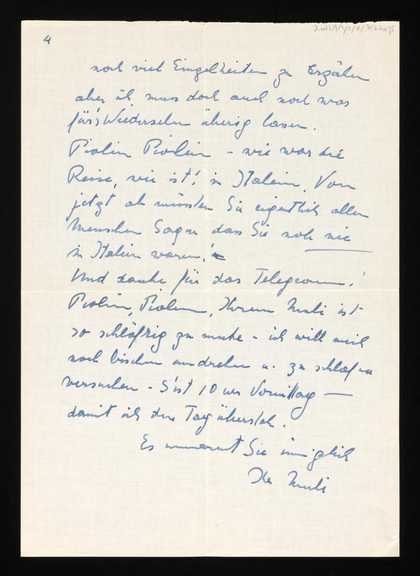 4
noch viel Einzelheiten zu Erzählen
aber ich muss doch auch noch was
für's Wiedersehn übrig lassen.
Violin Violin – wie war die
Reise, wie ist's in Italien. Von
jetzt ab müssten Sie eigentlich allen
Menschen Sagen dass Sie noch nie
in Italien waren!
Und danke für das Telegramm!
Violin, Violin, Ihrem ist
so schläfrig zu mute – ich will mich
noch bischen umdrehen u. zu schlafen
versuchen – S'ist 10 Uhr Vormittag –
damit ich den Tag übersteh.
Es umarmt Sie inniglich
Ihr